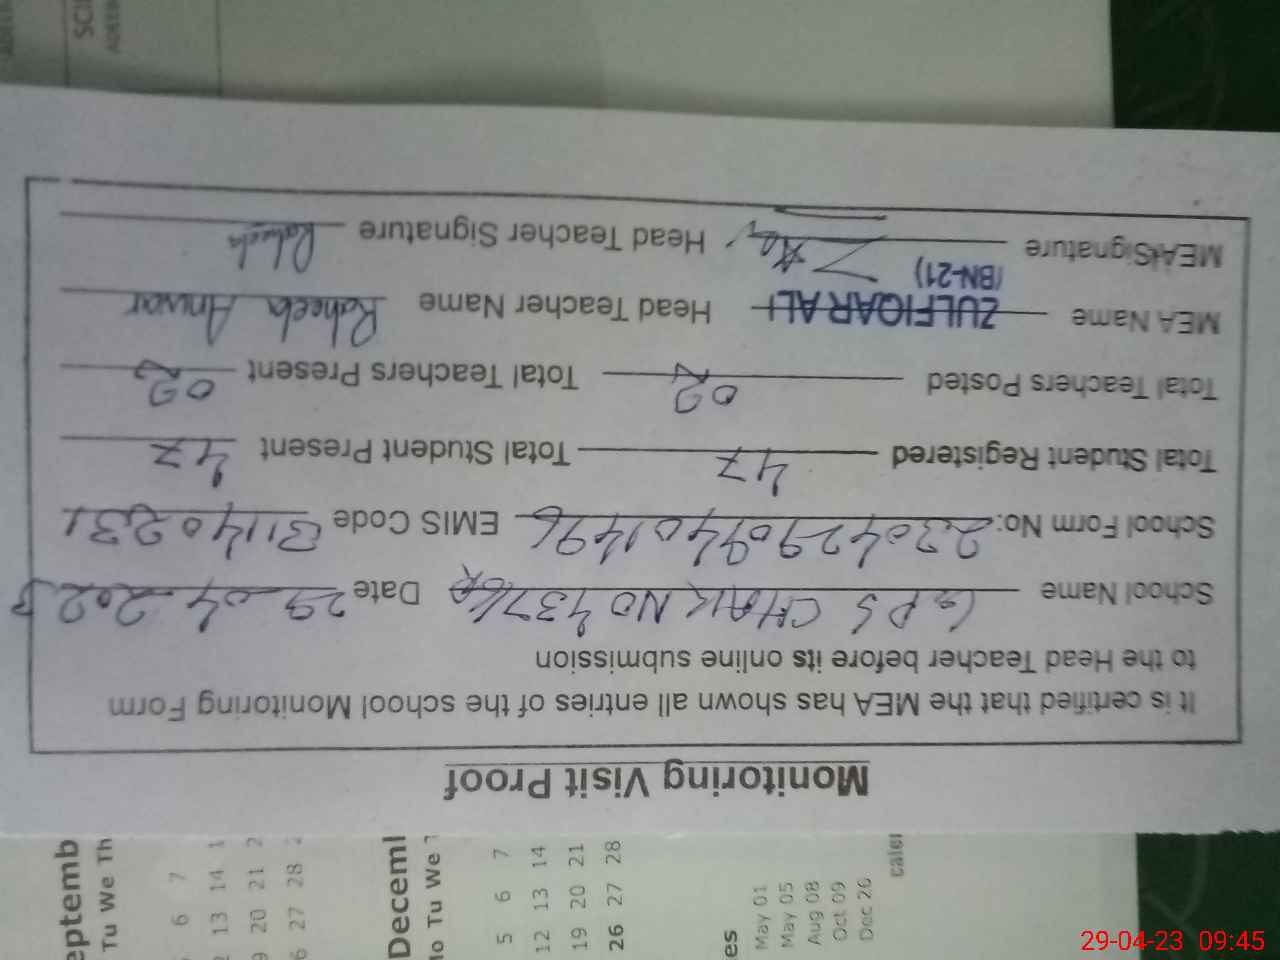 Monitoring Visit Proof
It is certified that the MEA has shown all entries of the school Monitoring Form
to the Head Teacher before its online submission
School Name GPS CHAK NO 437/6R Date 29-04-2023
School Form No: 2304290940 1496 EMIS Code 31140231
Total Student Registered 47 Total Student Present 47
Total Teachers Posted 02 Total Teachers Present 02
MEA Name ZULFIQAR ALI Head Teacher Name Raheela Anwar
(BN-21)
MEA Signature Head Teacher Signature Raheela
SCI
eptemb
Tu We Th
6 7
13 14 1
20 21 2
27 28
Decemb
Mo Tu We
5 6 7
12 13 14
19 20 21
26 27 28
es
May 01
May 05
Aug 08
Oct 09
Dec 20
caler
29-04-23 09:45